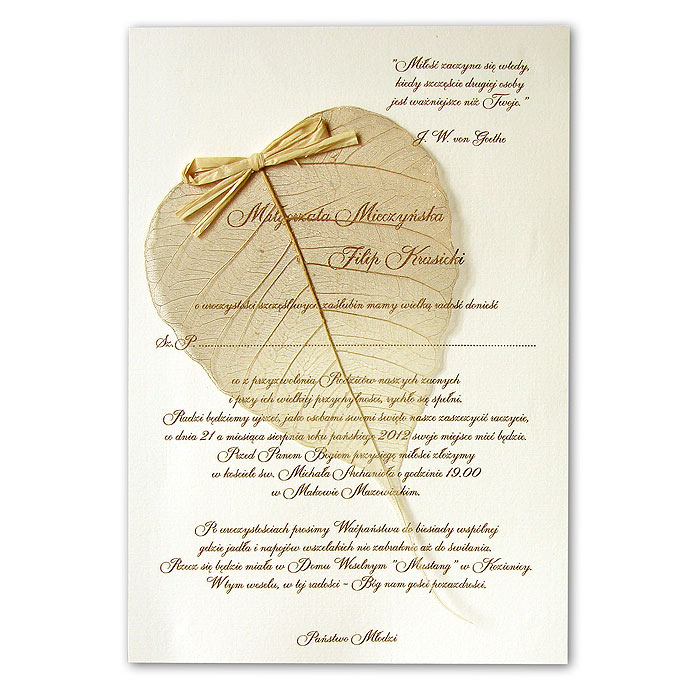 "Miłość zaczyna się wtedy,
kiedy szczęście drugiej osoby
jest ważniejsze niż Twoje."
J. W. von Goethe
Małgorzata Mieczyńska
Filip Krasicki
o uroczystości szczęśliwych zaślubin mamy wielką radość donieść
Sz. P. ........................................................................
co z przyzwolenia Rodziców naszych zacnych
i przy ich wielkiej przychylności, rychło się spełni.
Radzi będziemy ujrzeć, jako osobami swemi święto nasze zaszczycić raczycie,
co dnia 21 a miesiąca sierpnia roku pańskiego 2012 swoje miejsce mieć będzie.
Przed Panem Bogiem przysięgę miłości złożymy
w kościele św. Michała Archanioła o godzinie 19.00
w Makowie Mazowieckim.
Po uroczystościach prosimy Waćpaństwa do biesiady wspólnej
gdzie jadła i napojów wszelakich nie zabraknie aż do świtania.
Rzecz się będzie miała w Domu Weselnym "Mustang" w Kozienicy.
W tym weselu, w tej radości - Bóg nam gości pozazdrości.
Państwo Młodzi